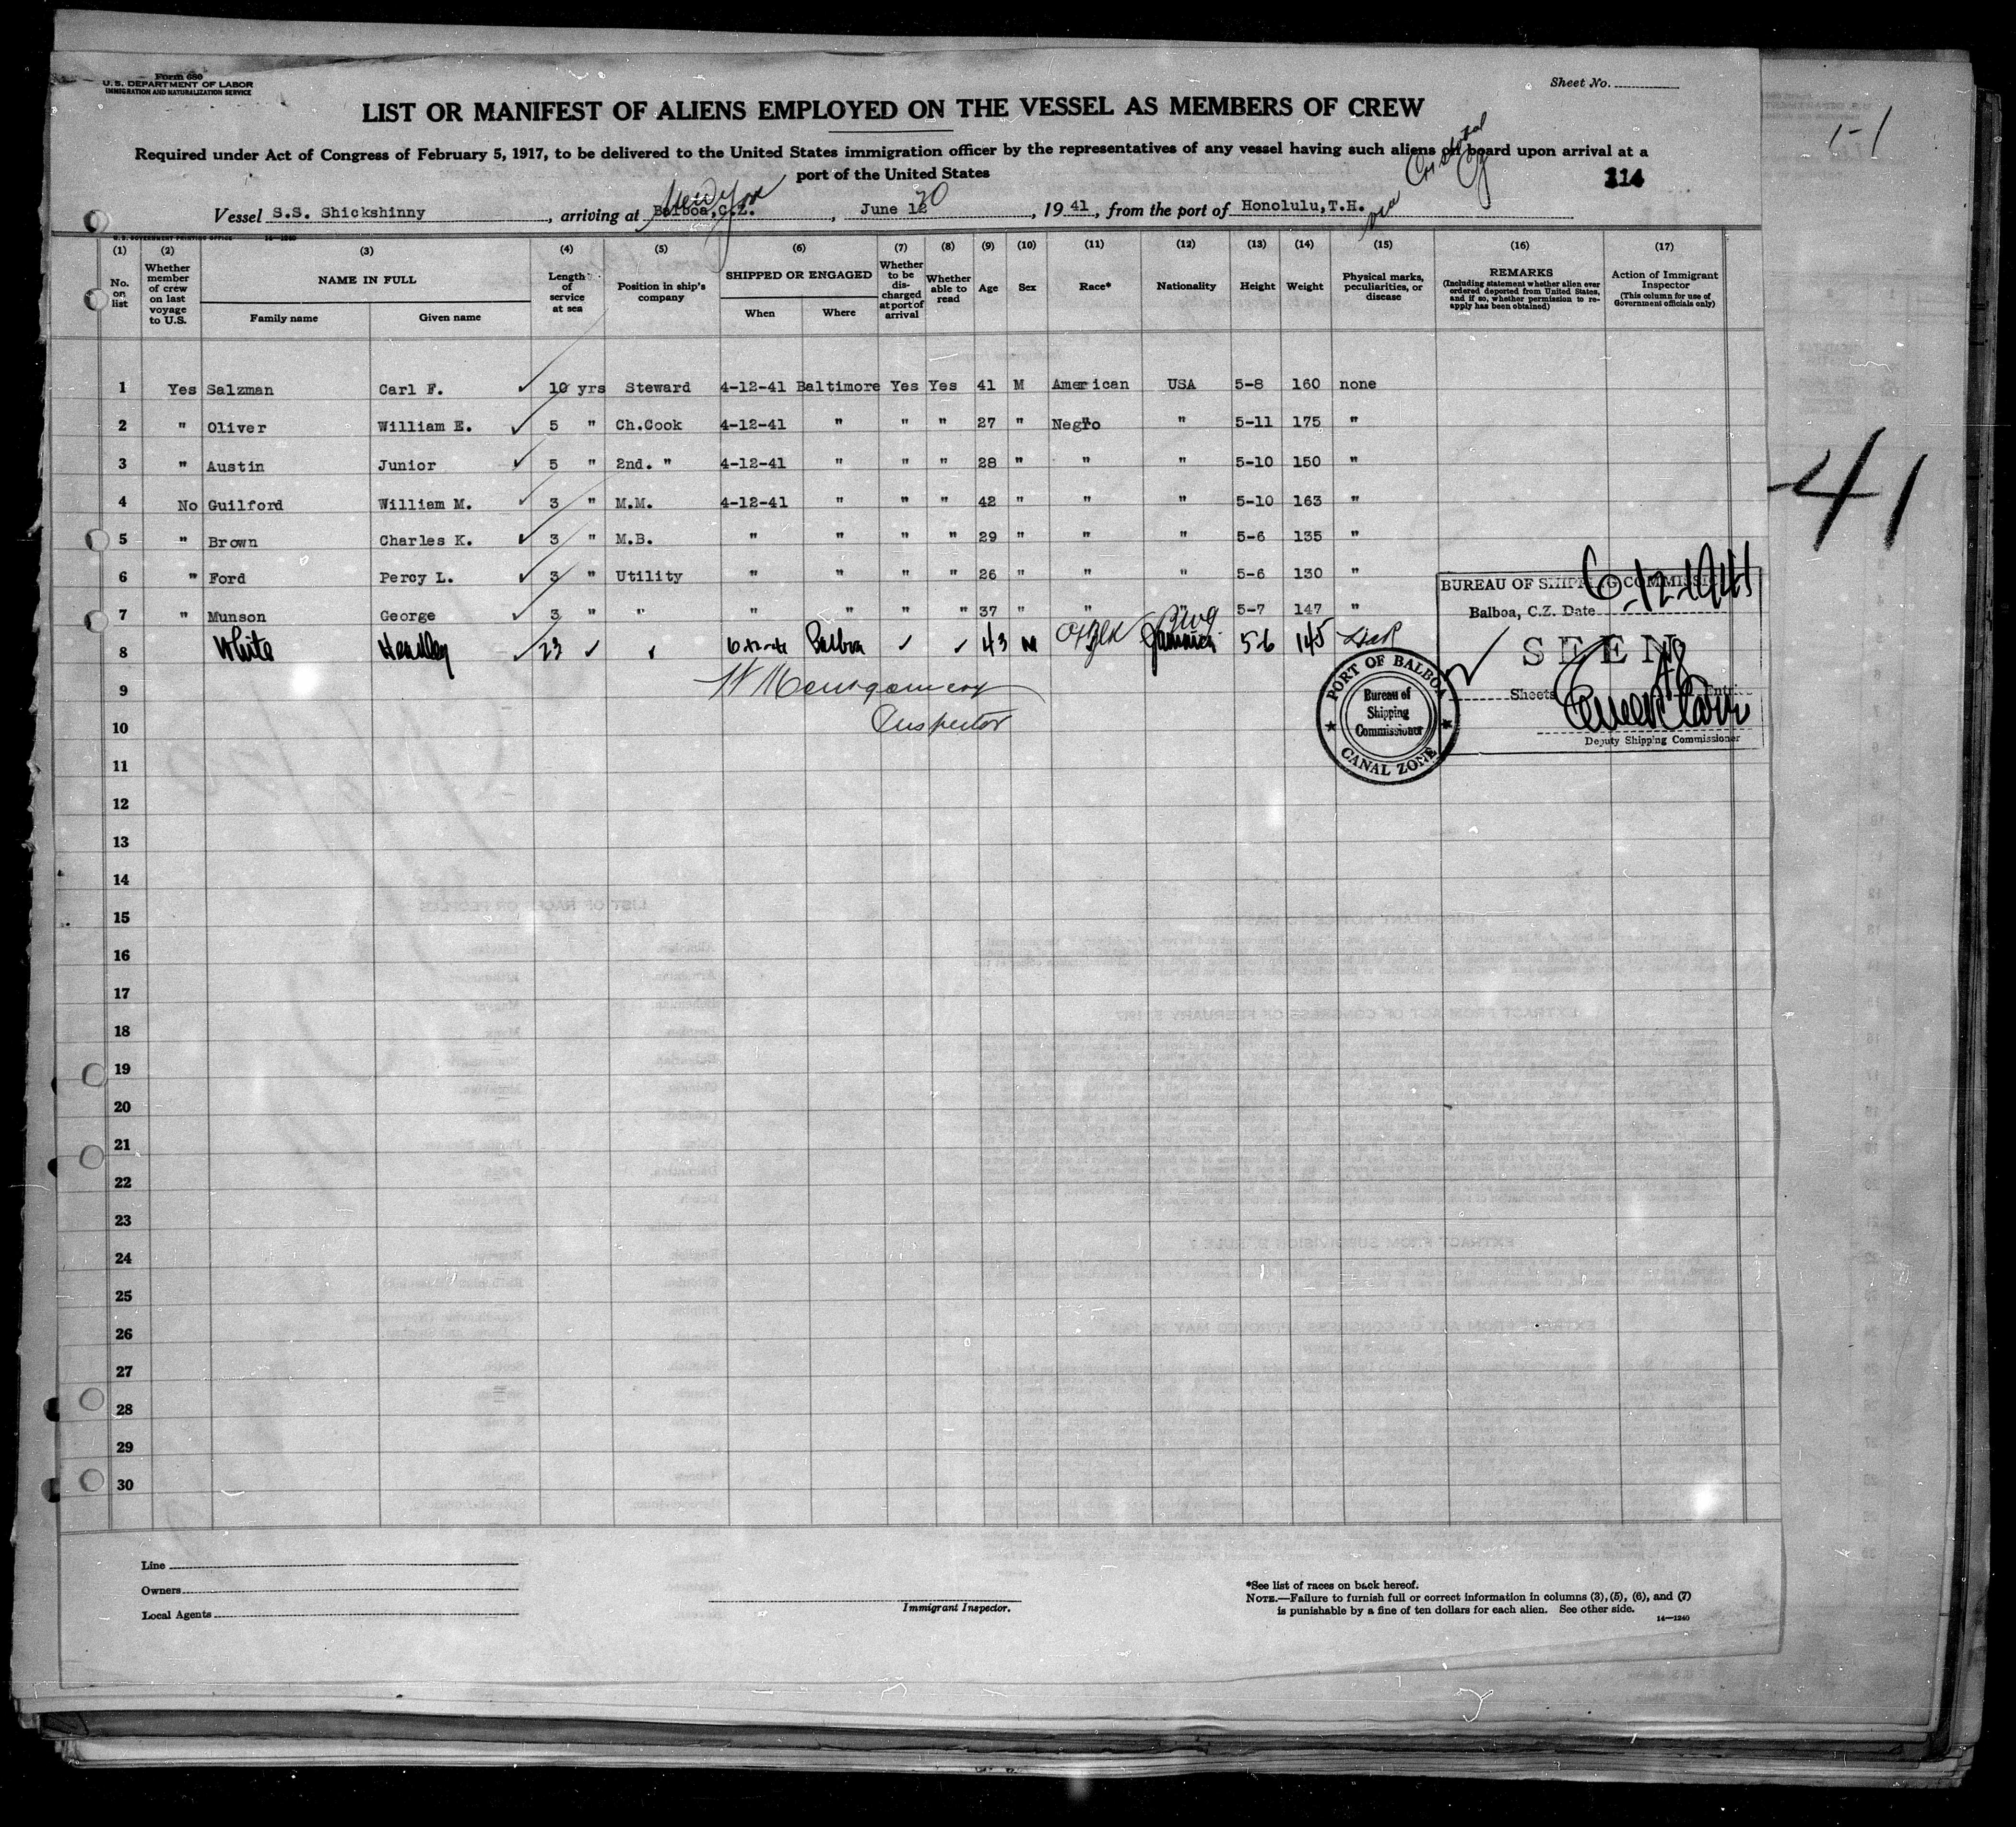 Form 680
U. S. DEPARTMENT OF LABOR
IMMIGRATION AND NATURALIZATION SERVICE
Sheet No.
1-1
LIST OR MANIFEST OF ALIENS EMPLOYED ON THE VESSEL AS MEMBERS OF CREW
Required under Act of Congress of February 5, 1917, to be delivered to the United States immigration officer by the representatives of any vessel having such aliens on board upon arrival at a
port of the United States
114
Vessel S.S. Shickshinny, arriving at Balboa, C.Z. New York, June 12 20, 1941, from the port of Honolulu, T.H. via Cristobal CZ
U. S. GOVERNMENT PRINTING OFFICE 14—1240
(1) (2) (3) (4) (5) (6) (7) (8) (9) (10) (11) (12) (13) (14) (15) (16) (17)
No. on list
Whether member of crew on last voyage to U.S.
NAME IN FULL
Family name Given name
Length of service at sea
Position in ship's company
SHIPPED OR ENGAGED
When Where
Whether to be discharged at port of arrival
Whether able to read
Age
Sex
Race*
Nationality
Height
Weight
Physical marks, peculiarities, or disease
REMARKS
(Including statement whether alien ever ordered deported from United States, and if so, whether permission to re-apply has been obtained)
Action of Immigrant Inspector
(This column for use of Government officials only)
1 Yes Salzman Carl F. 10 yrs Steward 4-12-41 Baltimore Yes Yes 41 M American USA 5-8 160 none
2 " Oliver William E. 5 " Ch.Cook 4-12-41 " " " 27 " Negro " 5-11 175 "
3 " Austin Junior 5 " 2nd. " 4-12-41 " " " 28 " " " 5-10 150 "
4 No Guilford William M. 3 " M.M. 4-12-41 " " " 42 " " " 5-10 163 "
5 " Brown Charles K. 3 " M.B. " " " " 29 " " " 5-6 135 "
6 " Ford Percy L. 3 " Utility " " " " 26 " " " 5-6 130 "
7 " Munson George 3 " " " " " " 37 " " " 5-7 147 "
8 White Headley 23 6-12-41 Balboa 43 M Jamaica 5-6 145
9 Montgomery
10 Inspector
11
12
13
14
15
16
17
18
19
20
21
22
23
24
25
26
27
28
29
30
41
BUREAU OF SHIPPING COMMISSIONER
Balboa, C.Z. Date 6-12-1941
SEEN
Sheets
Deputy Shipping Commissioner
PORT OF BALBOA
Bureau of
Shipping
Commissioner
CANAL ZONE
Line
Owners
Local Agents
Immigrant Inspector.
*See list of races on back hereof.
NOTE.—Failure to furnish full or correct information in columns (3), (5), (6), and (7)
is punishable by a fine of ten dollars for each alien. See other side.
14—1240